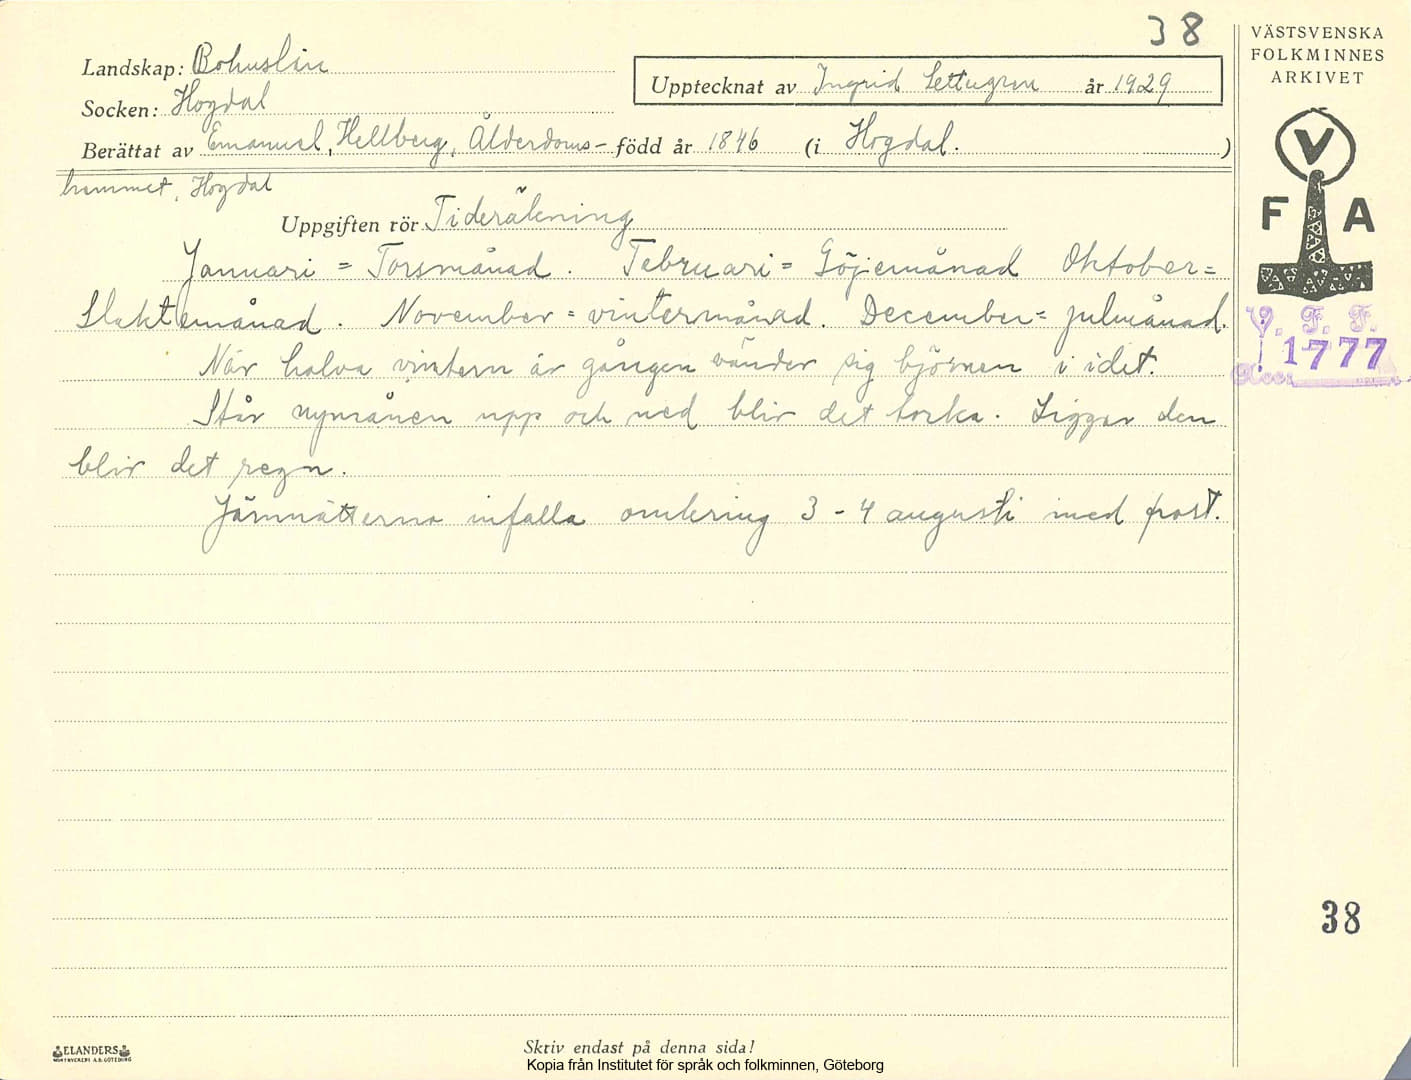 38
Landskap: Bohuslän
Upptecknat av Ingrid Settergren år 1929
Socken: Hogdal
Berättat av Emanuel, Hellberg, Ålderdoms- född år 1846 (i Hogdal. )
hemmet, Hogdal
Uppgiften rör Tideräkning
Januari = Torsmånad. Februari = Göjemånad Oktober =
Slaktemånad. November = vintermånad. December = julmånad.
När halva vintern är gången vänder sig björnen i idet.
Står nymånen upp och ned blir det torka. Ligger den
blir det regn.
Järnnätterna infalla omkring 3 - 4 augusti med frost.
VÄSTSVENSKA
FOLKMINNES
ARKIVET
V
F A
V. F. F.
1777
38
ELANDERS
Skriv endast på denna sida!
Kopia från Institutet för språk och folkminnen, Göteborg